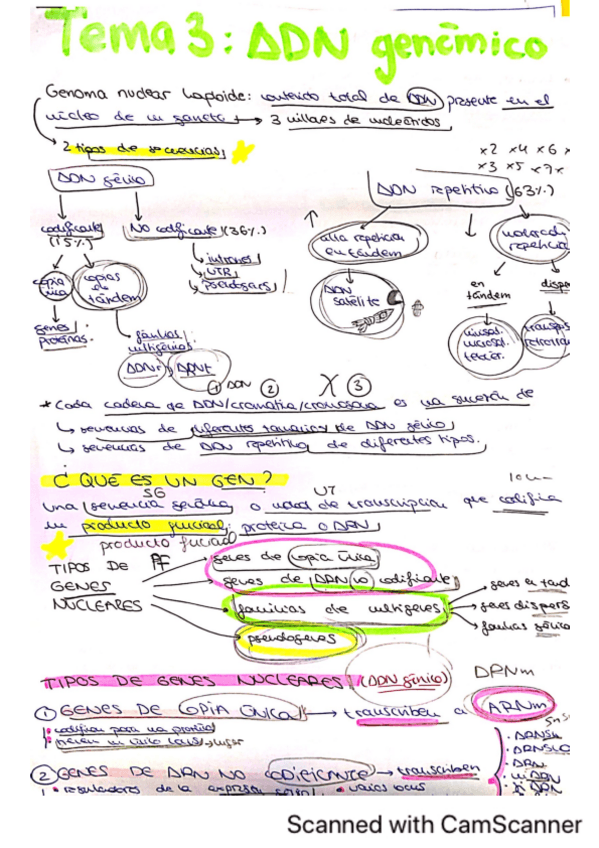 Tema 3: ADN genómico
Genoma nuclear haploide: contenido total de ADN presente en el
núcleo de un gameto → 3 millones de
2 tipos de secuencias
x2 x4 x6 x
x3 x5 x7x
ADN génico
ADN repetitivo (63%)
codificante (1,5%)
No codificante (36%)
alta repetición en tándem
moderada repetición
copia única
copias de tándem
intrones
UTR
pseudogenes
ADN satélite
en tándem
disp
genes/ proteínas.
familias multigénicas
minisat.
microsat.
telomer.
transpos
retrotran
ADNr
ADN
① ADN ② X ③
* Cada cadena de ADN/cromatina/cromosoma es una sucesión de
↳ secuencias de diferentes tamaños de ADN génico
↳ secuencias de ADN repetitivo de diferentes tipos.
¿QUÉ ES UN GEN?
SG UT
una secuencia génica o unidad de transcripción que codifica
un producto funcional: proteína o ARN
producto funcional
TIPOS DE
GENES
NUCLEARES
genes de copia única
genes de ARN no codificante
familias de multigenes
pseudogenes
genes en tand
genes dispers
familias génica
TIPOS DE GENES NUCLEARES (ADN génico)
① GENES DE COPIA ÚNICA → transcriben a ARNm
codifica para una proteína
tienen un único locus, lugar
② GENES DE ARN NO CODIFICANTE → transcriben
• reguladores de la expresión • varios locus
Scanned with CamScanner